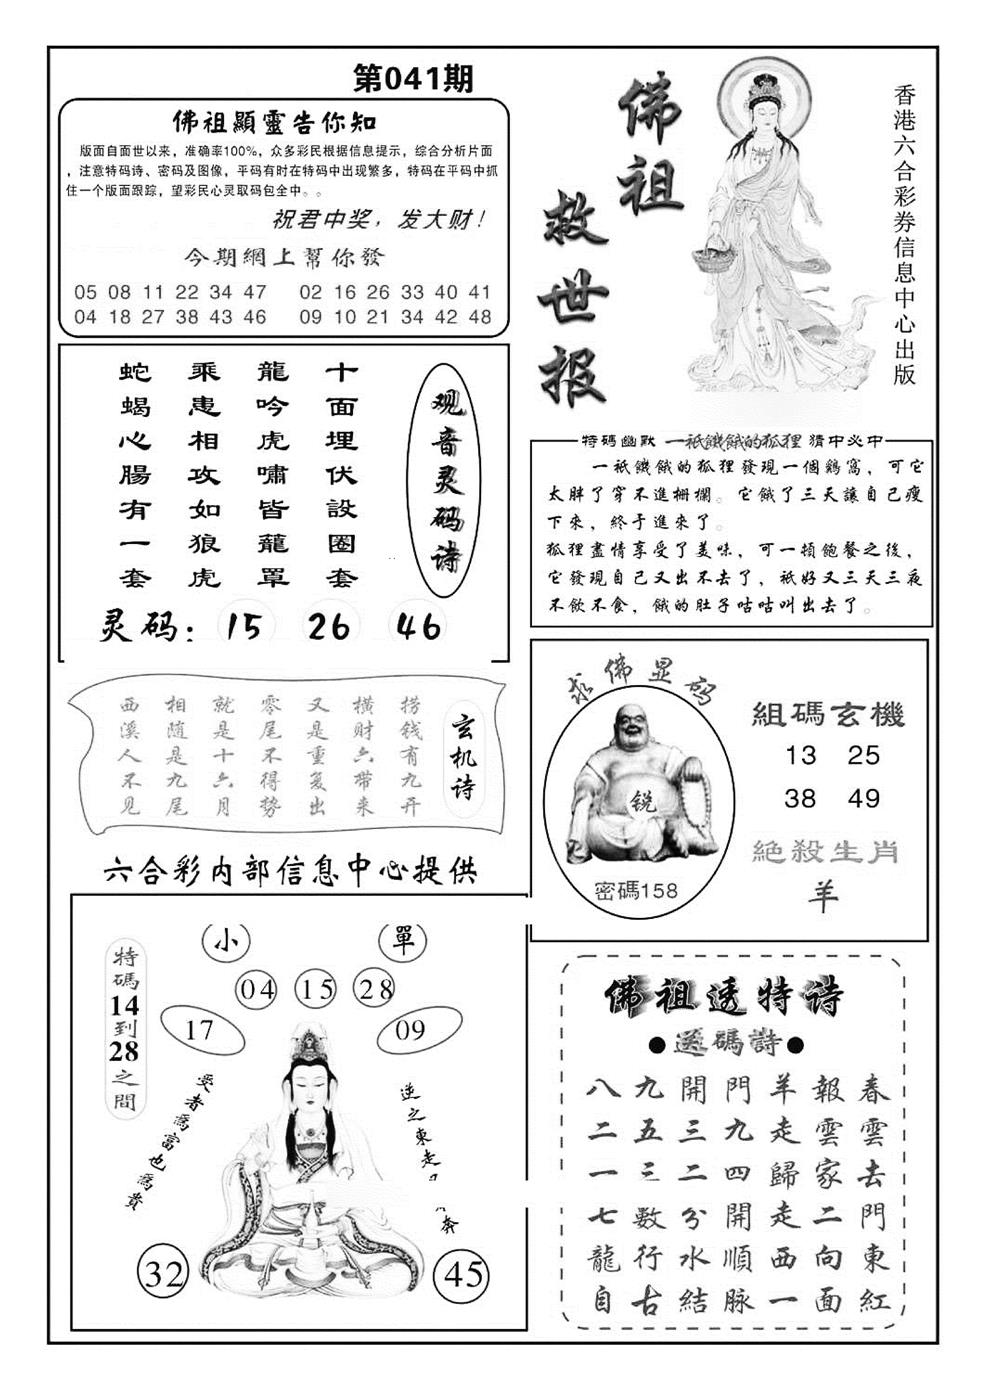 第041期
佛祖顯靈告你知
版面自面世以来，准确率100%，众多彩民根据信息提示，综合分析片面
，注意特码诗、密码及图像，平码有时在特码中出现繁多，特码在平码中抓
住一个版面跟踪，望彩民心灵取码包全中。。
祝君中奖，发大财！
今期網上幫你發
05 08 11 22 34 47 02 16 26 33 40 41
04 18 27 38 43 46 09 10 21 34 42 48
佛祖
救世报
香港六合彩券信息中心出版
观音灵码诗
十面埋伏設圈套
龍吟虎嘯皆籠罩
乘患相攻如狼虎
蛇蝎心腸有一套
灵码：15 26 46
特碼幽默 一衹饑餓的狐狸 猜中必中
一衹饑餓的狐狸發現一個鷄窩，可它
太胖了穿不進栅欄。它餓了三天讓自己瘦
下來，終于進來了。
狐狸盡情享受了美味，可一頓飽餐之後，
它發現自己又出不去了，衹好又三天三夜
不飲不食，餓的肚子咕咕叫出去了。
玄机诗
捞钱有九开
横财六带来
又是重复出
零尾不得势
就是十六月
相随是九尾
西溪人不见
六合彩内部信息中心提供
求佛显码
锐
密碼158
組碼玄機
13 25
38 49
絕殺生肖
羊
特碼14到28之間
小 單
04 15 28
17 09
受者爲富也爲貴
逆之東走
奔
32 45
佛祖透特诗
●送碼詩●
春雲去門東紅
報雲家二向面
羊走歸走西一
門九四開順脉
開三二分水結
九五三數行古
八二一七龍自